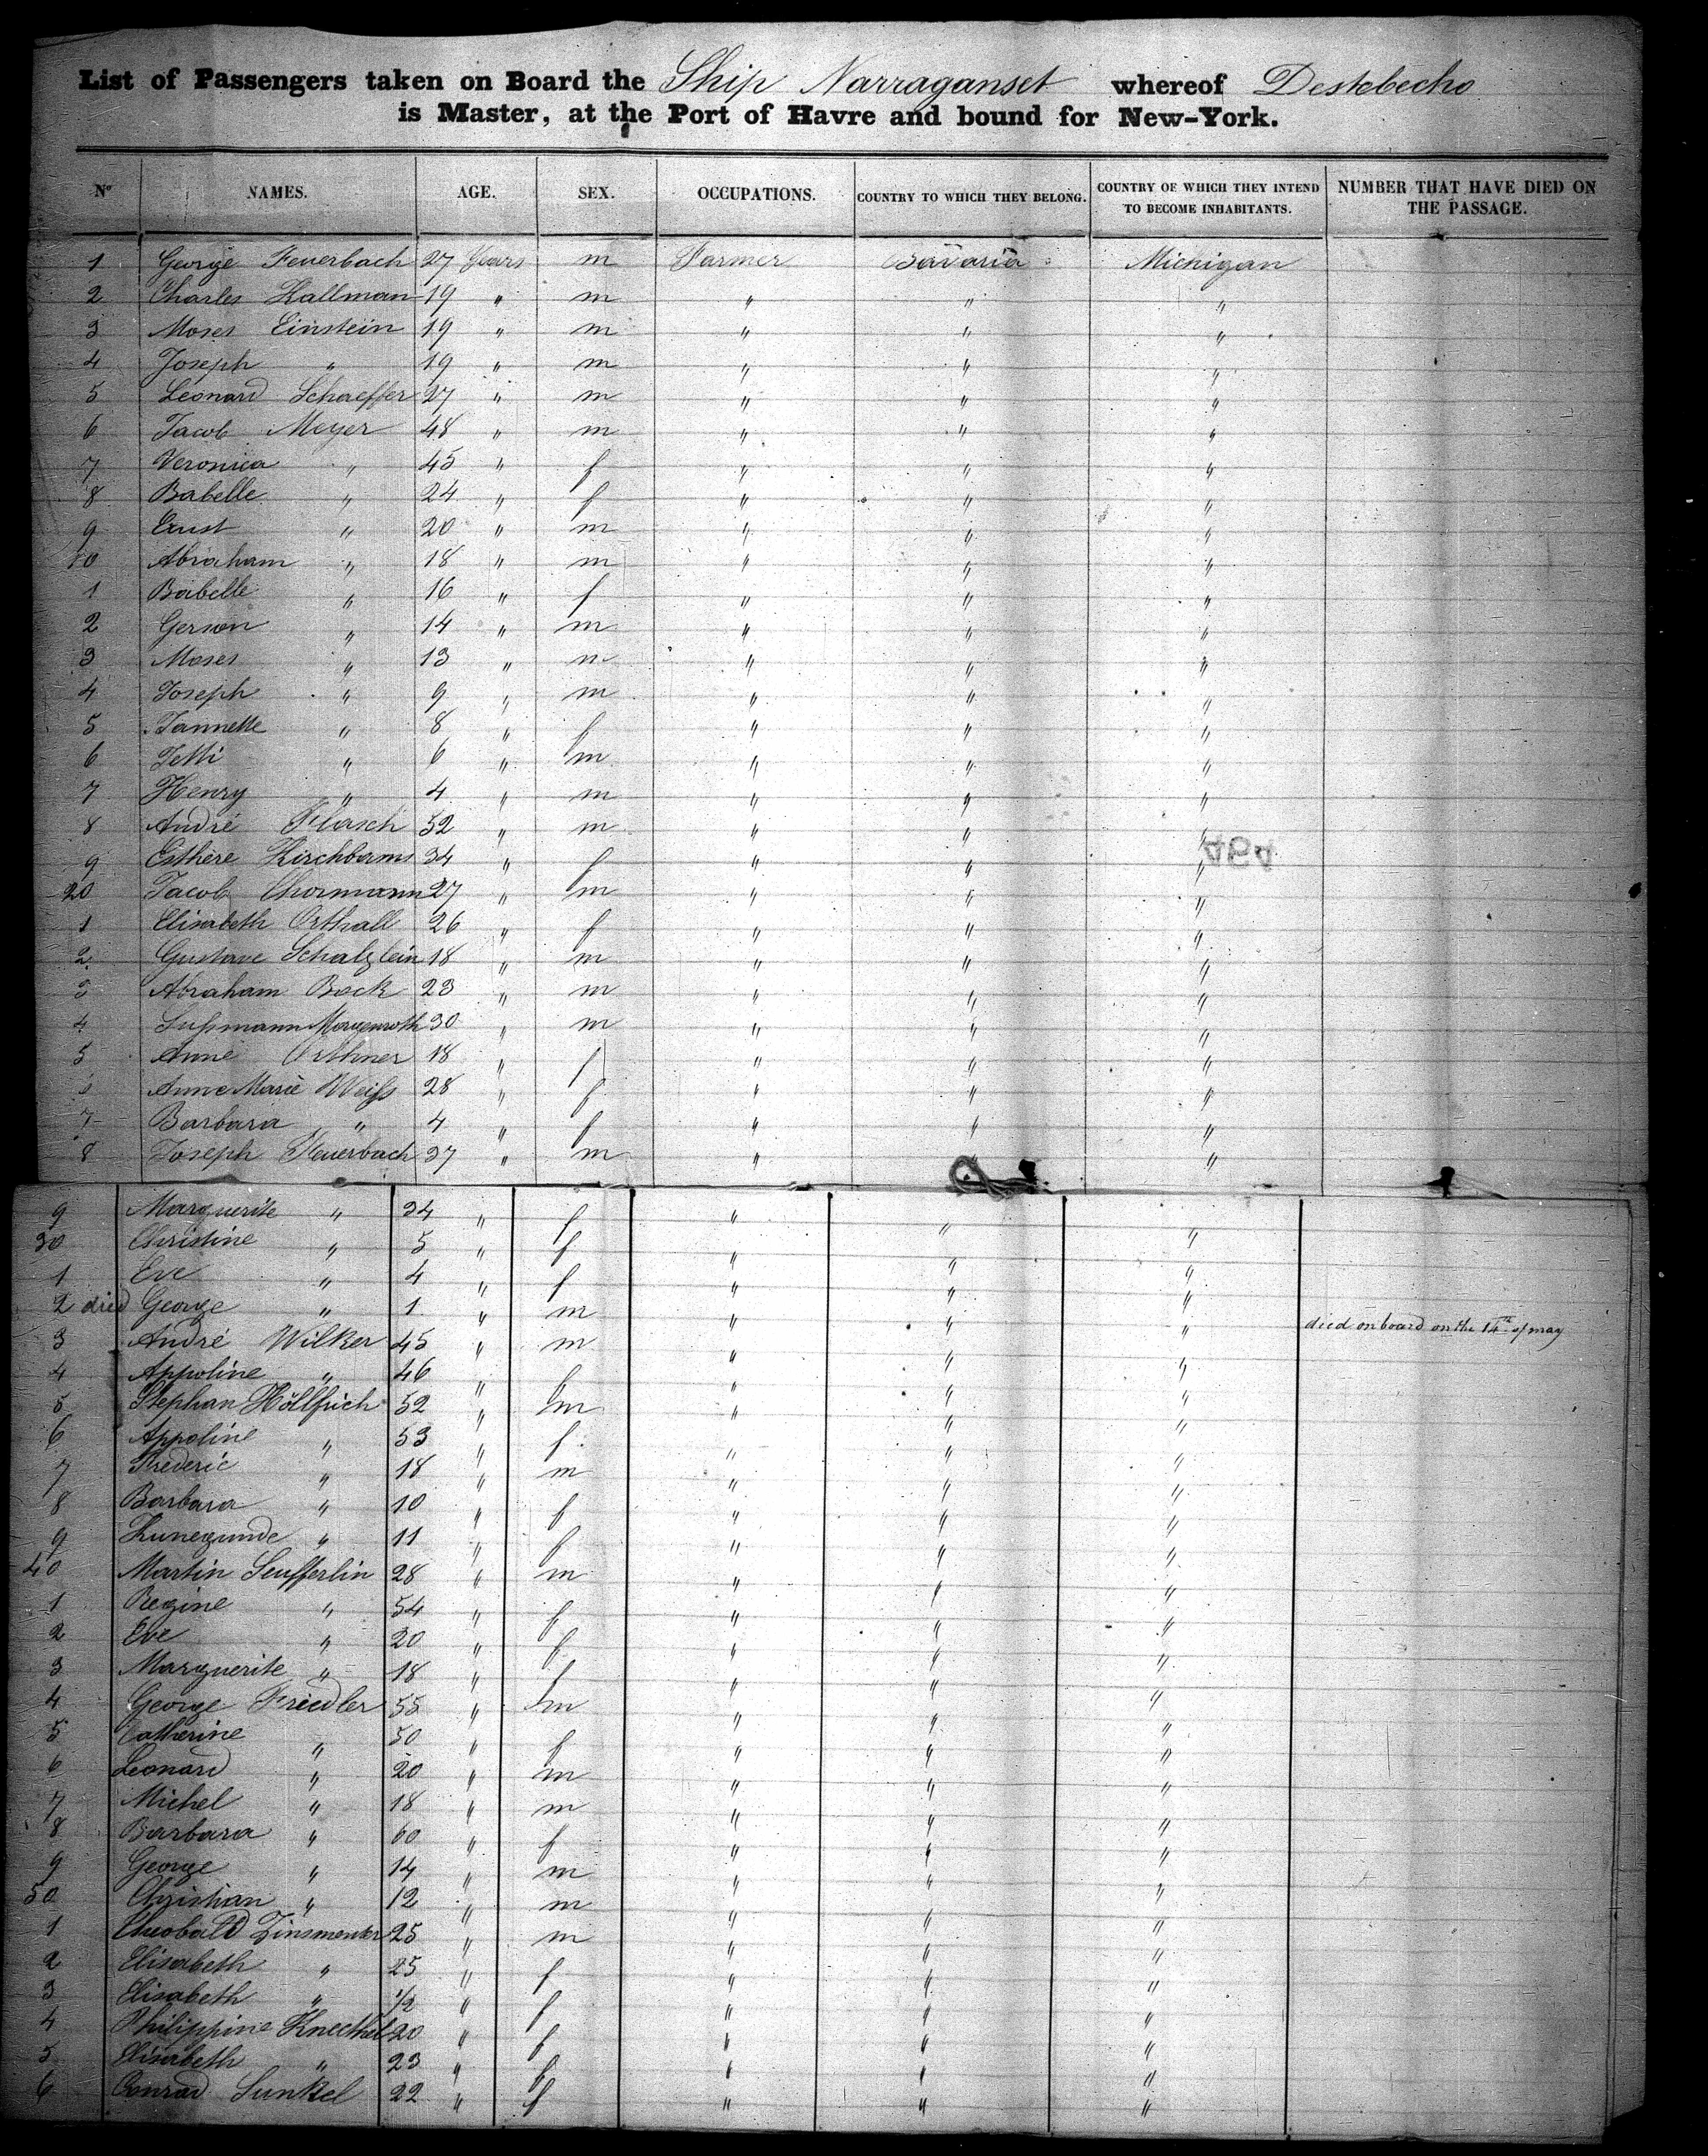 List of Passengers taken on Board the Ship Narraganset whereof Destebecho
is Master, at the Port of Havre and bound for New-York.
No NAMES. AGE. SEX. OCCUPATIONS. COUNTRY TO WHICH THEY BELONG. COUNTRY OF WHICH THEY INTEND TO BECOME INHABITANTS. NUMBER THAT HAVE DIED ON THE PASSAGE.
1 George Feuerbach 27 Years m Farmer Bavaria Michigan
2 Charles Kallman 19 " m " " "
3 Moses Einstein 19 " m " " "
4 Joseph " 19 " m " " "
5 Leonard Schaeffer 27 " m " " "
6 Jacob Meyer 48 " m " " "
7 Veronica " 45 " f " " "
8 Babelle " 24 " f " " "
9 Ernst " 20 " m " " "
10 Abraham " 18 " m " " "
1 Babelle " 16 " f " " "
2 Gerson " 14 " m " " "
3 Moses " 13 " m " " "
4 Joseph " 9 " m " " "
5 Jannette " 8 " f " " "
6 Jetti " 6 " m " " "
7 Henry " 4 " m " " "
8 André Flasch 52 " m " " "
9 Esthère Kirschbams 34 " f " " "
494
20 Jacob Chormann 27 " m " " "
1 Elisabeth Orthall 26 " f " " "
2 Gustave Schalzlein 18 " m " " "
3 Abraham Bock 23 " m " " "
4 Sußmann Morgenroth 30 " m " " "
5 Anne Orthner 18 " f " " "
6 Anne Marie Weiß 28 " f " " "
7 Barbara " 4 " f " " "
8 Joseph Feuerbach 37 " m " " "
9 Marguerite " 34 " f " " "
30 Christine " 5 " f " " "
1 Eve " 4 " f " " "
2 died George " 1 " m " " " died on board on the 14th of may
3 André Wilker 45 " m " " "
4 Appoline " 46 " f " " "
5 Stephan Höllfrich 52 " m " " "
6 Appoline " 53 " f " " "
7 Fréderic " 18 " m " " "
8 Barbara " 10 " f " " "
9 Kunegunde " 11 " f " " "
40 Martin Seufferlin 28 " m " " "
1 Regine " 54 " f " " "
2 Eve " 20 " f " " "
3 Marguerite " 18 " f " " "
4 George Friedler 55 " m " " "
5 Catherine " 50 " f " " "
6 Leonard " 20 " m " " "
7 Michel " 18 " m " " "
8 Barbara " 60 " f " " "
9 George " 14 " m " " "
50 Christian " 12 " m " " "
1 Theobald Zinsmenter 25 " m " " "
2 Elisabeth " 25 " f " " "
3 Elisabeth " 1/2 " f " " "
4 Philippine Knechtel 20 " f " " "
5 Elisabeth " 23 " f " " "
6 Conrad Sunkel 22 " f " " "